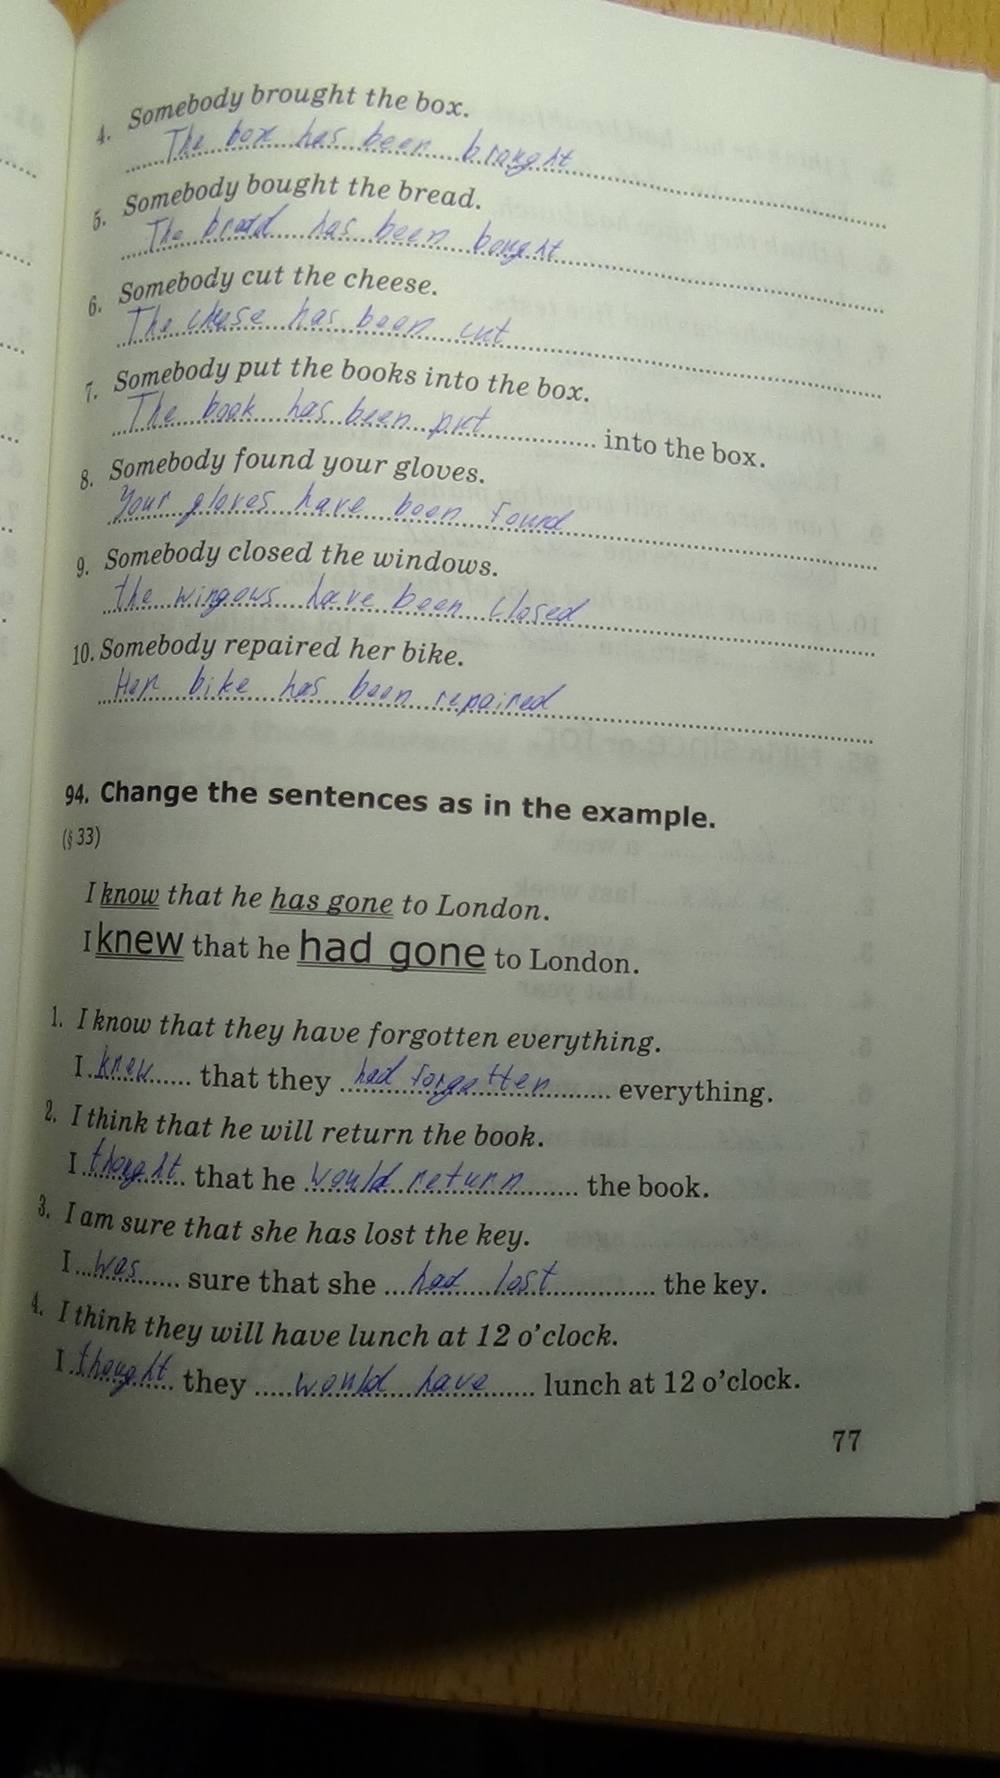 4. Somebody brought the box.
The box has been brought
5. Somebody bought the bread.
The bread has been bought
6. Somebody cut the cheese.
The chese has been cut
7. Somebody put the books into the box.
The book has been put into the box.
8. Somebody found your gloves.
Your gloves have been found
9. Somebody closed the windows.
the wingows have been closed
10. Somebody repaired her bike.
Her bike has been repaired
94. Change the sentences as in the example.
(§ 33)
I know that he has gone to London.
I knew that he had gone to London.
1. I know that they have forgotten everything.
I knew that they had forgotten everything.
2. I think that he will return the book.
I thought that he would return the book.
3. I am sure that she has lost the key.
I was sure that she had lost the key.
4. I think they will have lunch at 12 o'clock.
I thought they would have lunch at 12 o'clock.
77